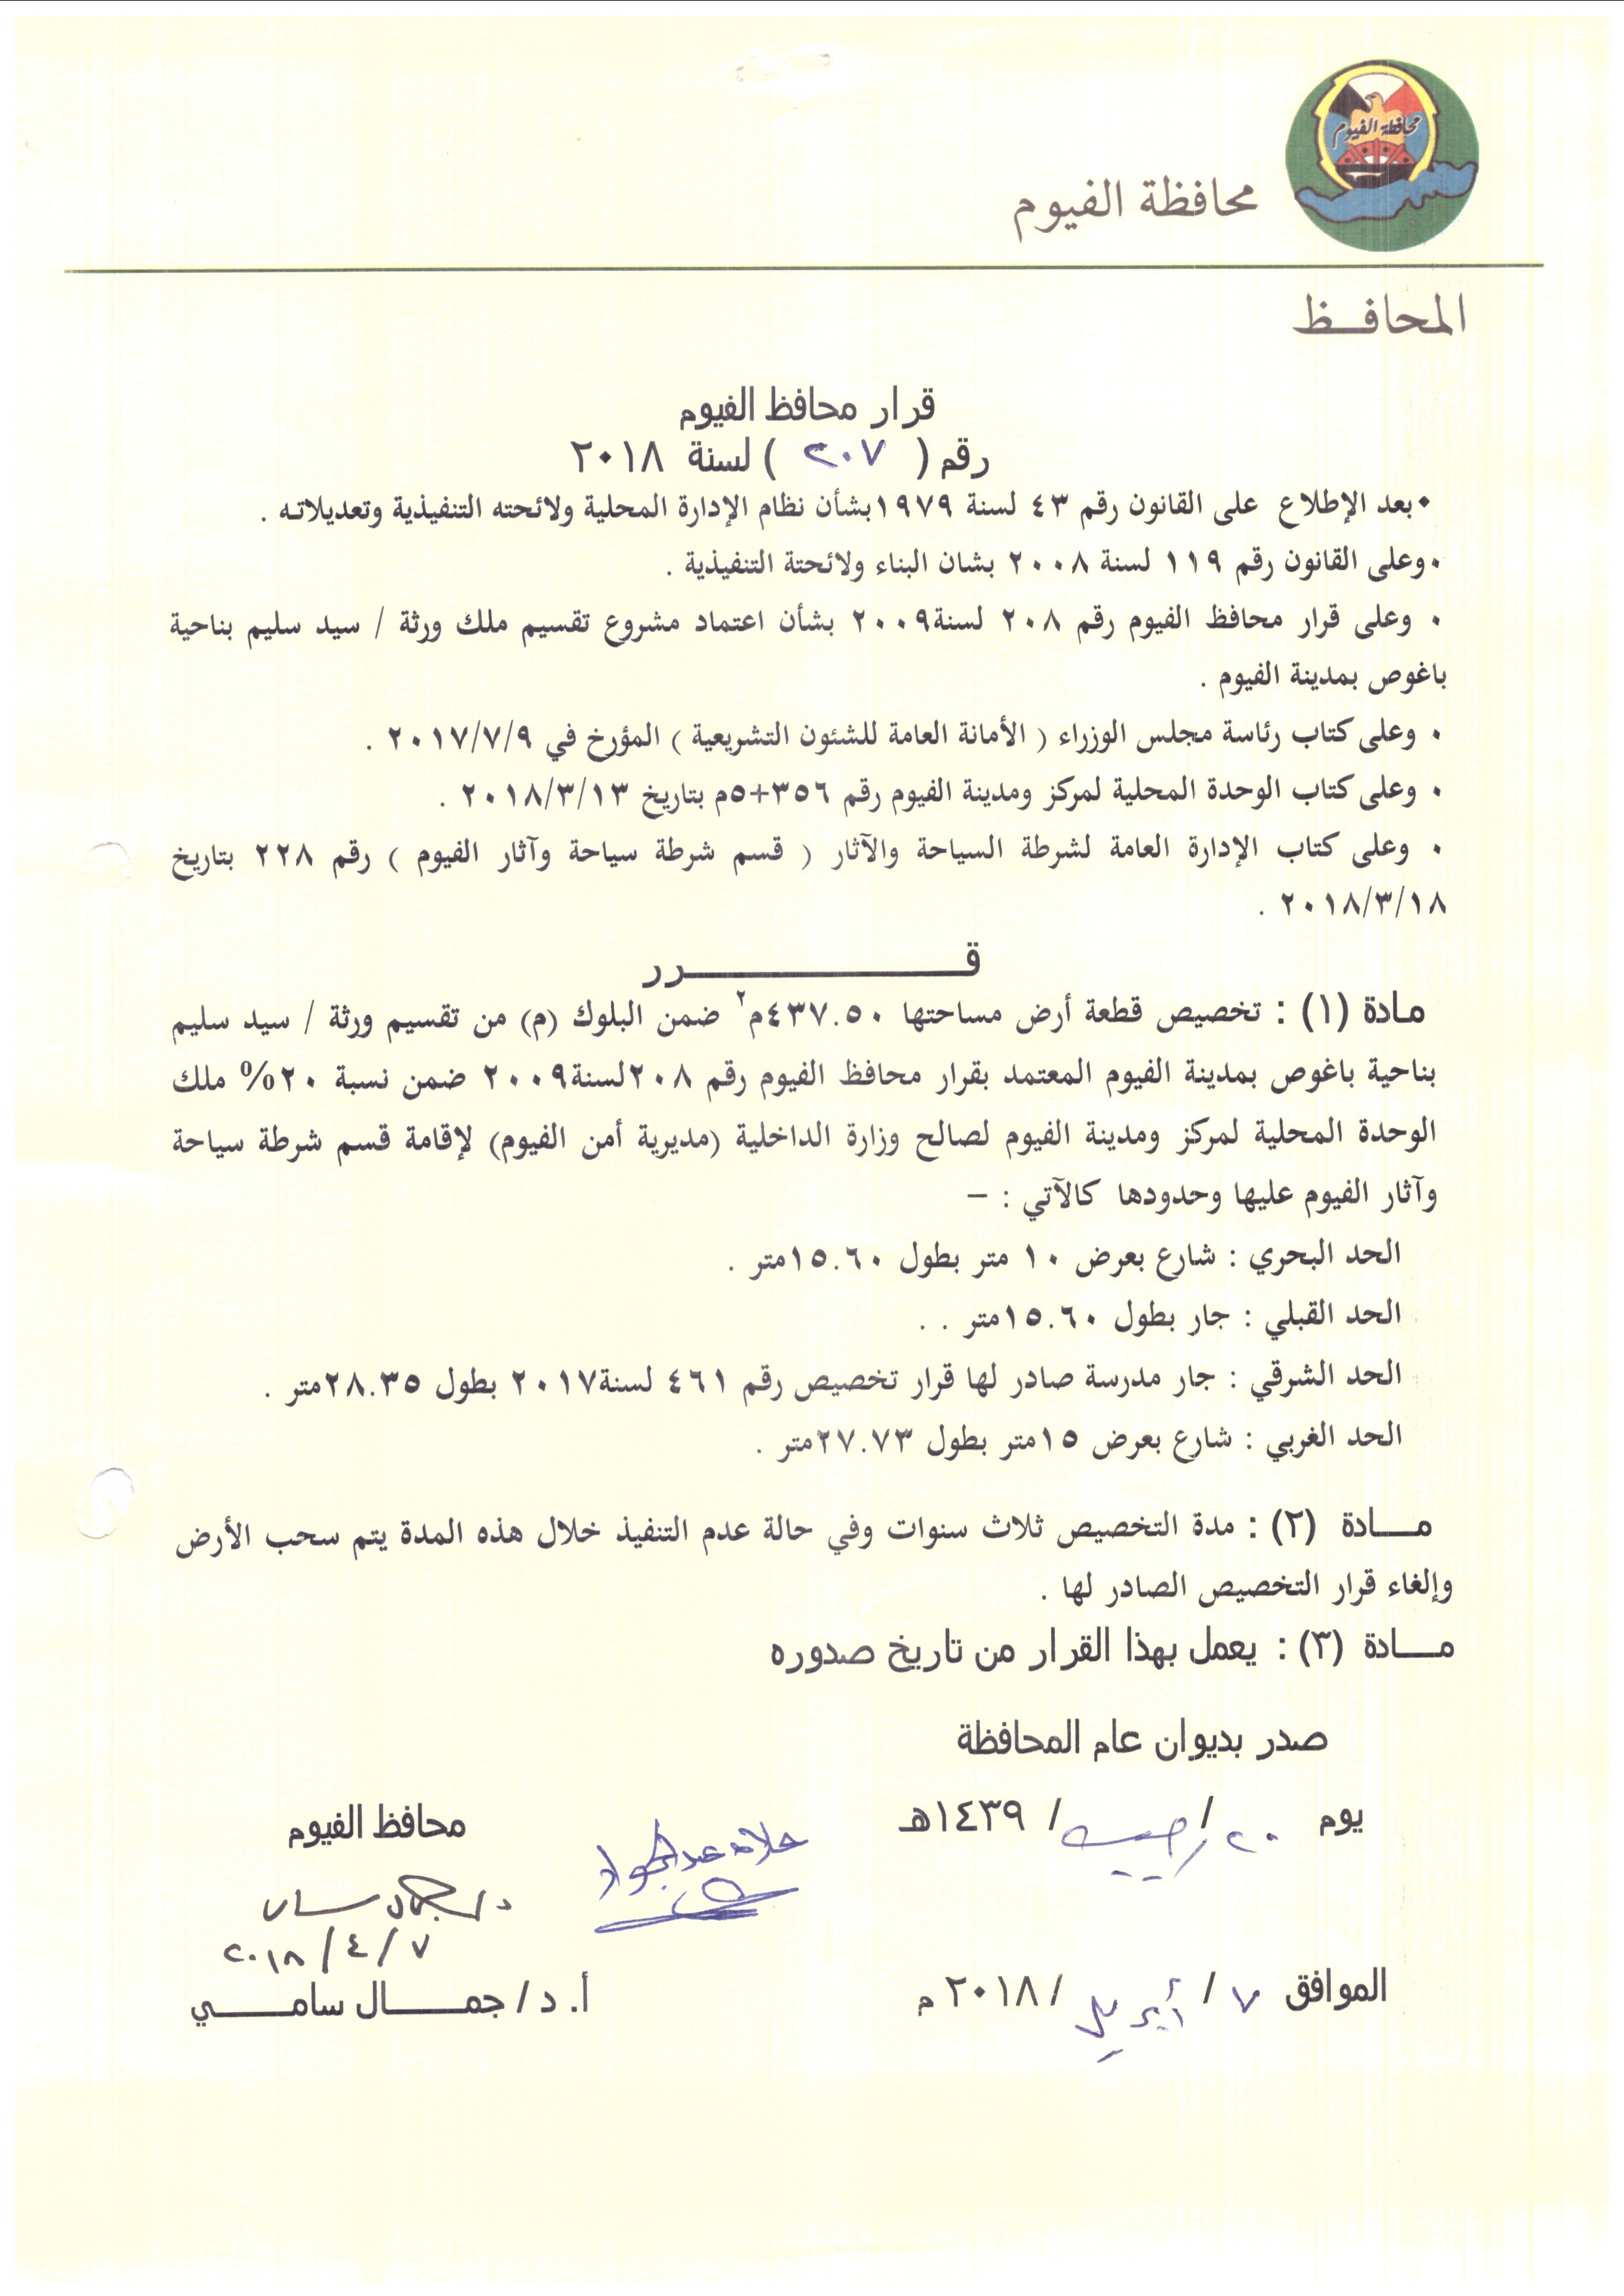 محافظة الفيوم
محافظة الفيوم
المحافـظ
قرار محافظ الفيوم
رقم ( ٢٠٧ ) لسنة ٢٠١٨
• بعد الإطلاع على القانون رقم ٤٣ لسنة ١٩٧٩بشأن نظام الإدارة المحلية ولائحته التنفيذية وتعديلاتـه .
• وعلى القانون رقم ١١٩ لسنة ٢٠٠٨ بشان البناء ولائحتة التنفيذية .
• وعلى قرار محافظ الفيوم رقم ٢٠٨ لسنة٢٠٠٩ بشأن اعتماد مشروع تقسيم ملك ورثة / سيد سليم بناحية
باغوص بمدينة الفيوم .
• وعلى كتاب رئاسة مجلس الوزراء ( الأمانة العامة للشئون التشريعية ) المؤرخ في ٢٠١٧/٧/٩ .
• وعلى كتاب الوحدة المحلية لمركز ومدينة الفيوم رقم ٣٥٦+٥م بتاريخ ٢٠١٨/٣/١٣ .
• وعلى كتاب الإدارة العامة لشرطة السياحة والآثار ( قسم شرطة سياحة وآثار الفيوم ) رقم ٢٢٨ بتاريخ
٢٠١٨/٣/١٨ .
قــــــــــــــرر
مـادة (١) : تخصيص قطعة أرض مساحتها ٤٣٧.٥٠م٢ ضمن البلوك (م) من تقسيم ورثة / سيد سليم
بناحية باغوص بمدينة الفيوم المعتمد بقرار محافظ الفيوم رقم ٢٠٨لسنة٢٠٠٩ ضمن نسبة ٢٠% ملك
الوحدة المحلية لمركز ومدينة الفيوم لصالح وزارة الداخلية (مديرية أمن الفيوم) لإقامة قسم شرطة سياحة
وآثار الفيوم عليها وحدودها كالآتي : –
الحد البحري : شارع بعرض ١٠ متر بطول ١٥.٦٠متر .
الحد القبلي : جار بطول ١٥.٦٠متر . .
الحد الشرقي : جار مدرسة صادر لها قرار تخصيص رقم ٤٦١ لسنة٢٠١٧ بطول ٢٨.٣٥متر .
الحد الغربي : شارع بعرض ١٥متر بطول ٢٧.٧٣متر .
مـــادة (٢) : مدة التخصيص ثلاث سنوات وفي حالة عدم التنفيذ خلال هذه المدة يتم سحب الأرض
وإلغاء قرار التخصيص الصادر لها .
مـــادة (٣) : يعمل بهذا القرار من تاريخ صدوره
صدر بديوان عام المحافظة
يوم ٢٠ / رجب / ١٤٣٩هـ
محافظ الفيوم
علاء عبد الجواد
د/ جمال سامى
٢٠١٨/٤/٧
الموافق ٧ / أبريل / ٢٠١٨ م
أ. د / جمــــال سامــــي